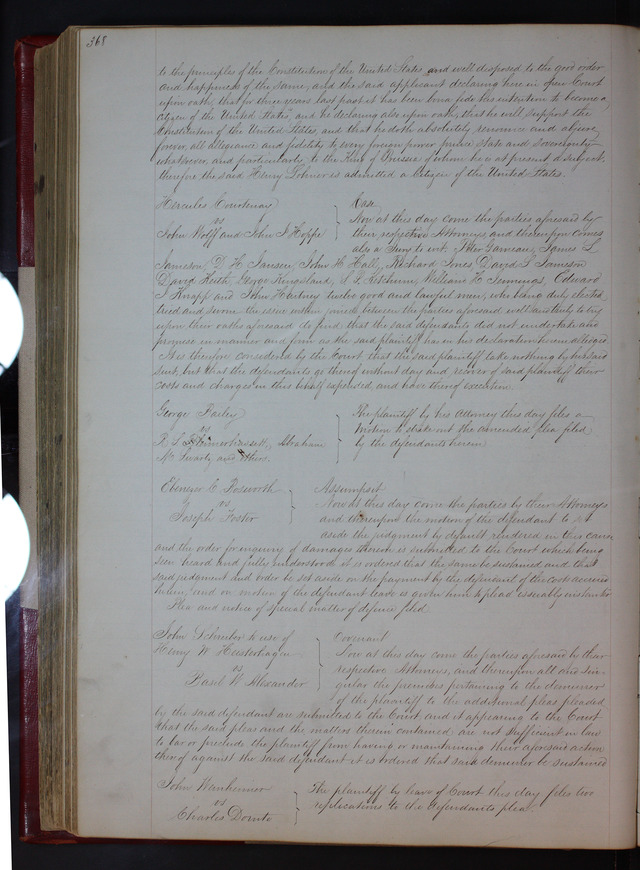 368
to the principles of the Constitution of the United States, and well disposed to the good order
and happiness of the same, and the said applicant declaring here in open Court
upon oath, that for three years last past it has been bona fide his intention to become a
citizen of the United States, and he declaring also upon oath, that he will support the
Constitution of the United States, and that he doth absolutely renounce and abjure
forever, all allegiance and fidelity to every foreign power prince state and sovereignty
whatsoever, and particularly to the King of Prussia of whom he is at present a subject,
therefore the said Henry is admitted a citizen of the United States.
Hercules Courtenay } Case
vs Now at this day come the parties aforesaid by
John Wolff and John J Hoppe their respective Attorneys, and thereupon comes
also a Jury to wit: Peter Gameau, James L
Jameson, D. H. Jansen, John H. Hall, Richard Jones, David S Jameson
David Keith, George Kingsland, Ketchum, William H. Jennings, Edward
J Knapp and John Hartney twelve good and lawful men, who being duly elected
tried and sworn the issue within joined between the parties aforesaid well and truly to try
upon their oaths aforesaid do find that the said defendants did not undertake and
promise in manner and form as the said plaintiff has in his declaration herein alleged
It is therefore considered by the Court that the said plaintiff take nothing by his said
suit, but that the defendants go thereof without day and recover of said plaintiff their
costs and charges in this behalf expended, and have thereof execution.
George } The plaintiff by his Attorney this day files a
vs motion to strike out the amended plea filed
R. S. Abraham by the defendants herein
Mc Swartz and others.
Ebenezer C Bosworth } Assumpsit
vs Now at this day come the parties by their Attorneys
Joseph Foster and thereupon the motion of the defendant to set
aside the judgment by default rendered in this cause
and the order for inquiry of damages thereon is submitted to the Court which being
seen heard and fully understood it is ordered that the same be sustained and that
said judgment and order be set aside on the payment by the defendant of the costs accrued
herein, and on motion of the defendant leave is given him to plead issuably instanter
Plea and notice of special matter of defence filed
John Schreiber to use of } Covenant
Henry W Hasterhagen Now at this day come the parties aforesaid by their
vs respective Attorneys, and thereupon all and sin-
Basil W. Alexander gular the premises pertaining to the demurrer
of the plaintiff to the additional pleas pleaded
by the said defendant are submitted to the Court and it appearing to the Court
that the said pleas and the matters therein contained are not sufficient in law
to bar or preclude the plaintiff from having or maintaining their aforesaid action
thereof against the said defendant it is ordered that said demurrer be sustained
John Wanheimer } The plaintiff by leave of Court this day files two
vs replications to the Defendants plea.
Charles